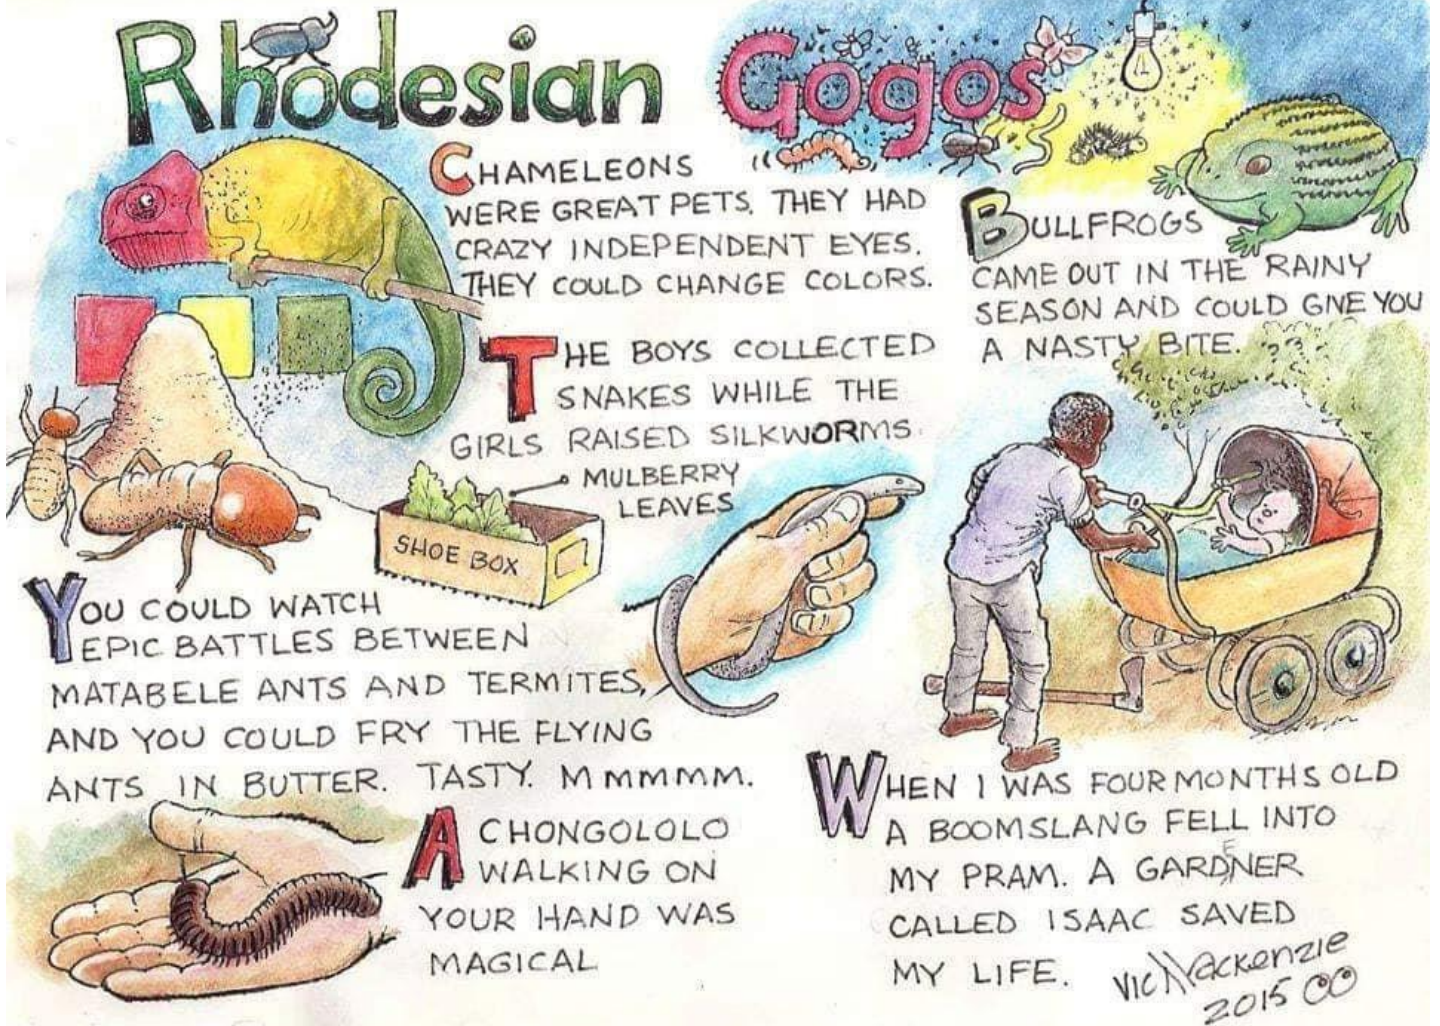 Rhodesian Gogos
CHAMELEONS
WERE GREAT PETS. THEY HAD
CRAZY INDEPENDENT EYES.
THEY COULD CHANGE COLORS.
BULLFROGS
CAME OUT IN THE RAINY
SEASON AND COULD GIVE YOU
A NASTY BITE.
THE BOYS COLLECTED
SNAKES WHILE THE
GIRLS RAISED SILKWORMS.
MULBERRY
LEAVES
SHOE BOX
YOU COULD WATCH
EPIC BATTLES BETWEEN
MATABELE ANTS AND TERMITES,
AND YOU COULD FRY THE FLYING
ANTS IN BUTTER. TASTY. MMMMMM.
A CHONGOLOLO
WALKING ON
YOUR HAND WAS
MAGICAL
WHEN I WAS FOUR MONTHS OLD
A BOOMSLANG FELL INTO
MY PRAM. A GARDENER
CALLED ISAAC SAVED
MY LIFE.
Vic Mackenzie
2015